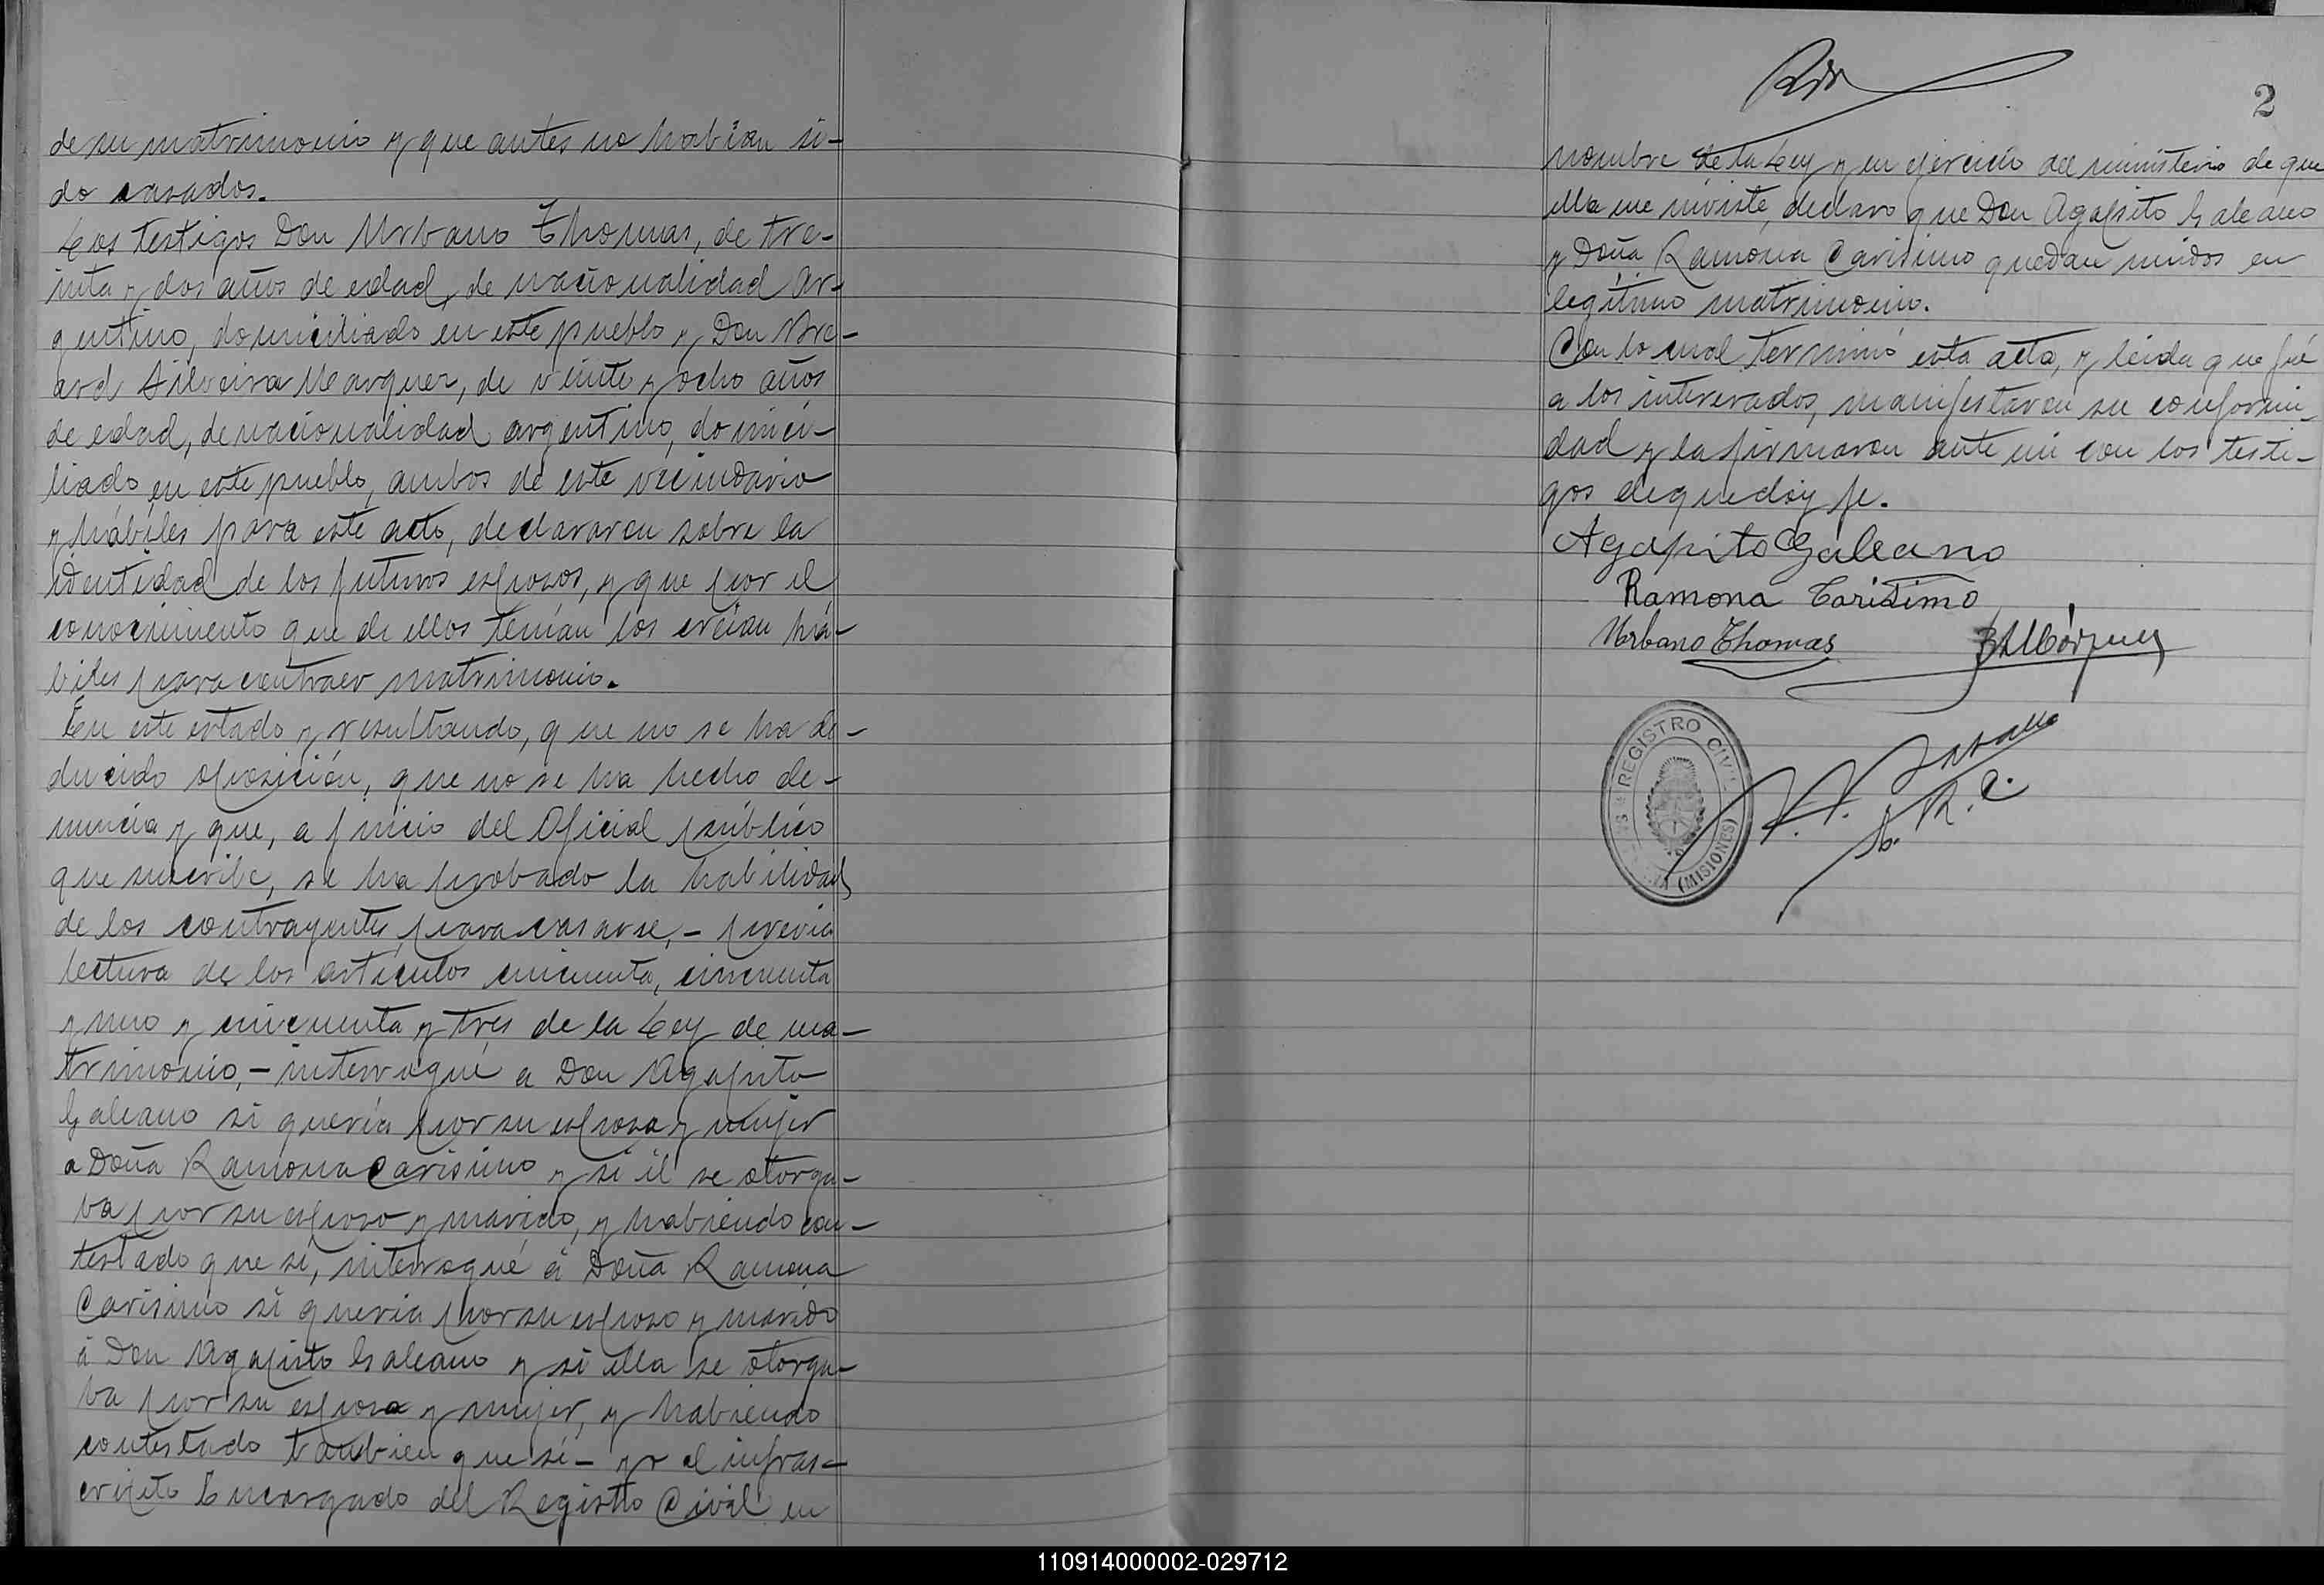 de su matrimonio y que antes no habian si-
do casados.
Los testigos Don Urbano Thomas, de tre-
inta y dos años de edad, de nacionalidad Ar-
gentino, domiciliado en este pueblo y Don
Silveira Marquez, de veinte y ocho años
de edad, de nacionalidad argentino, domici-
liado en este pueblo, ambos de este vecindario
y hábiles para este acto, declararon sobre la
identidad de los futuros esposos, y que por el
conocimiento que de ellos tenían los creían há-
biles para contraer matrimonio.
En este estado y resultando, que no se ha de-
ducido oposición, que no se ha hecho de-
nuncia y que, a juicio del Oficial público
que suscribe, se ha probado la habilidad
de los contrayentes para casarse,- previa
lectura de los artículos cincuenta, cincuenta
y uno y cincuenta y tres de la Ley de ma-
trimonio,- interrogué a Don Agapito
Galeano si quería por su esposa y mujer
a Doña Ramona Carisimo y si él se otorga-
ba por su esposo y marido, y habiendo con-
testado que si, interrogué á Doña Ramona
Carisimo si queria por su esposo y marido
á Don Agapito Galeano y si ella se otorga-
ba por su esposa y mujer, y habiendo
contestado tambien que si- yo el infras-
cripto Encargado del Registro Civil en
2
nombre de la Ley y en ejercicio del ministerio de que
ella me inviste, declaro que Don Agapito Galeano
y Doña Ramona Carisimo quedan unidos en
legítimo matrimonio.
Con lo cual terminó esta acta, y leida que fué
a los interesados, manifestaron su conformi-
dad y la firmaron ante mi con los testi-
gos de que doy fe.
Agapito Galeano
Ramona Carisimo
Urbano Thomas BSMárquez
REGISTRO CIVIL
(MISIONES)
R. C.
110914000002-029712